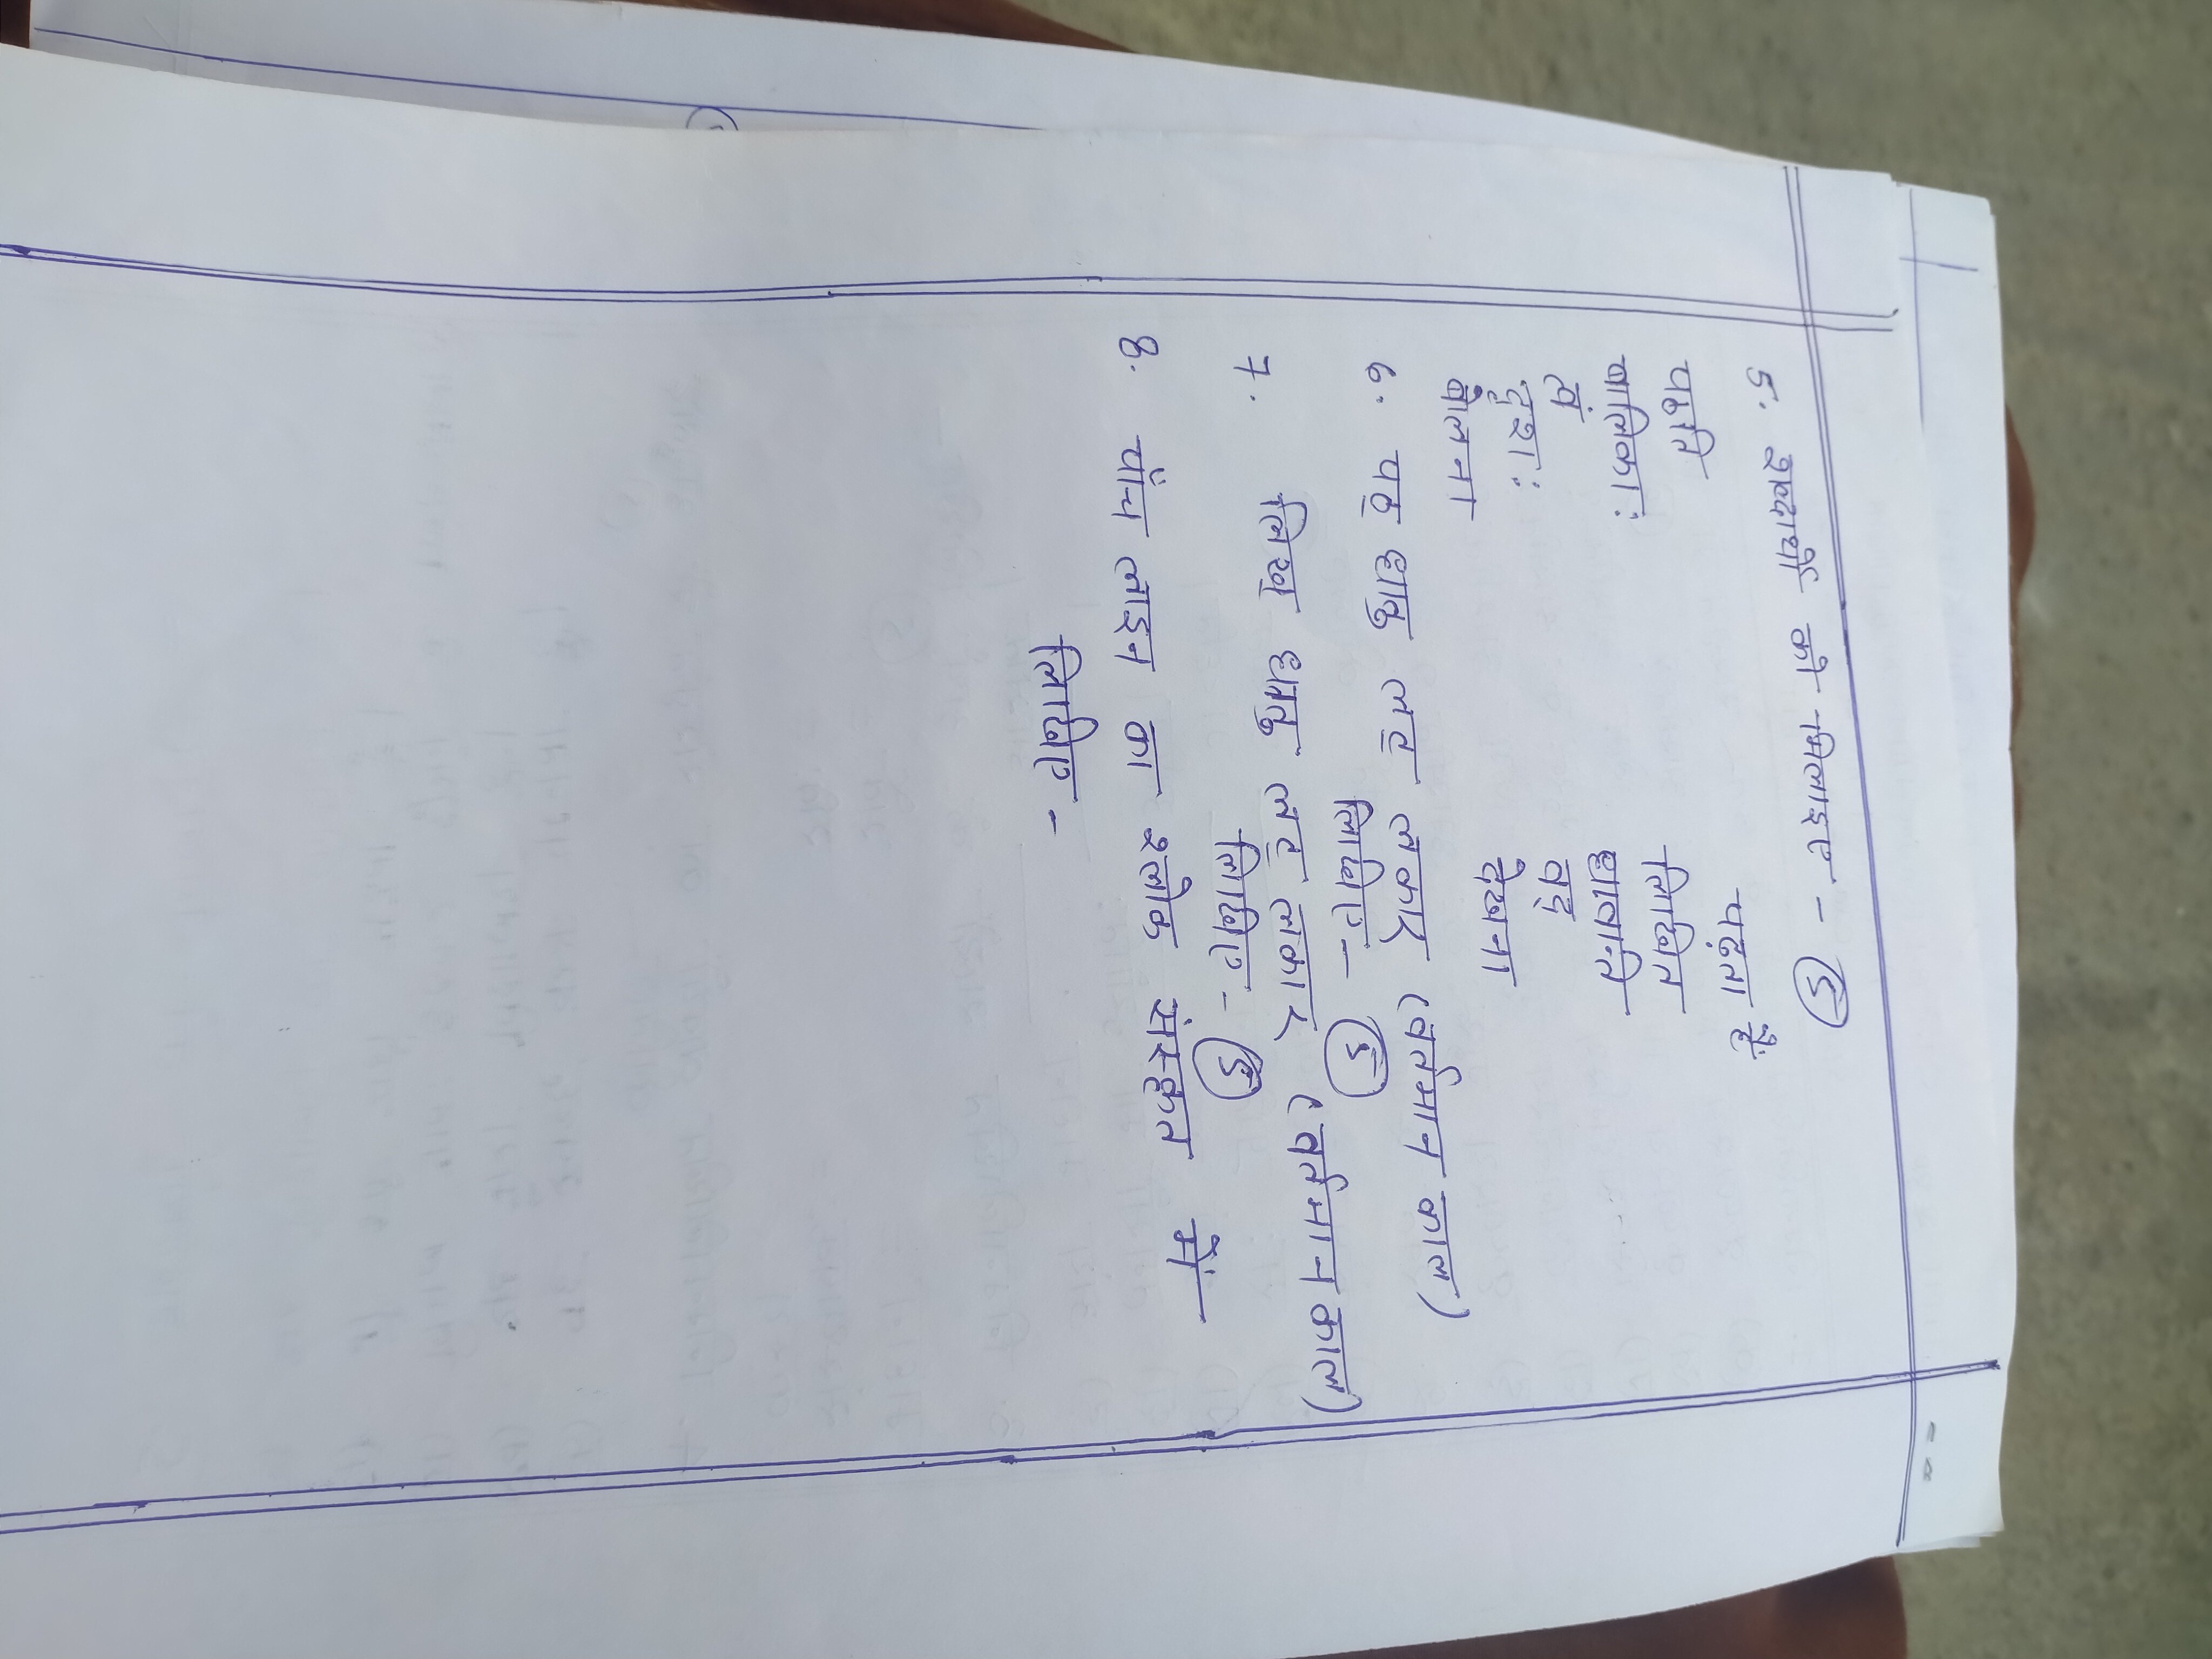 5. शब्दार्थो को मिलाइए - (5)
पठति पढ़ता है
बालिका: लिखित
त्वं धावन्ति
दृश: वद्
बोलना देखना
6. पठ् धातु लट् लकार (वर्तमान काल)
लिखिए - (5)
7. लिख् धातु लट् लकार (वर्तमान काल)
लिखिए - (5)
8. पाँच लाइन का श्लोक संस्कृत में
लिखिए -